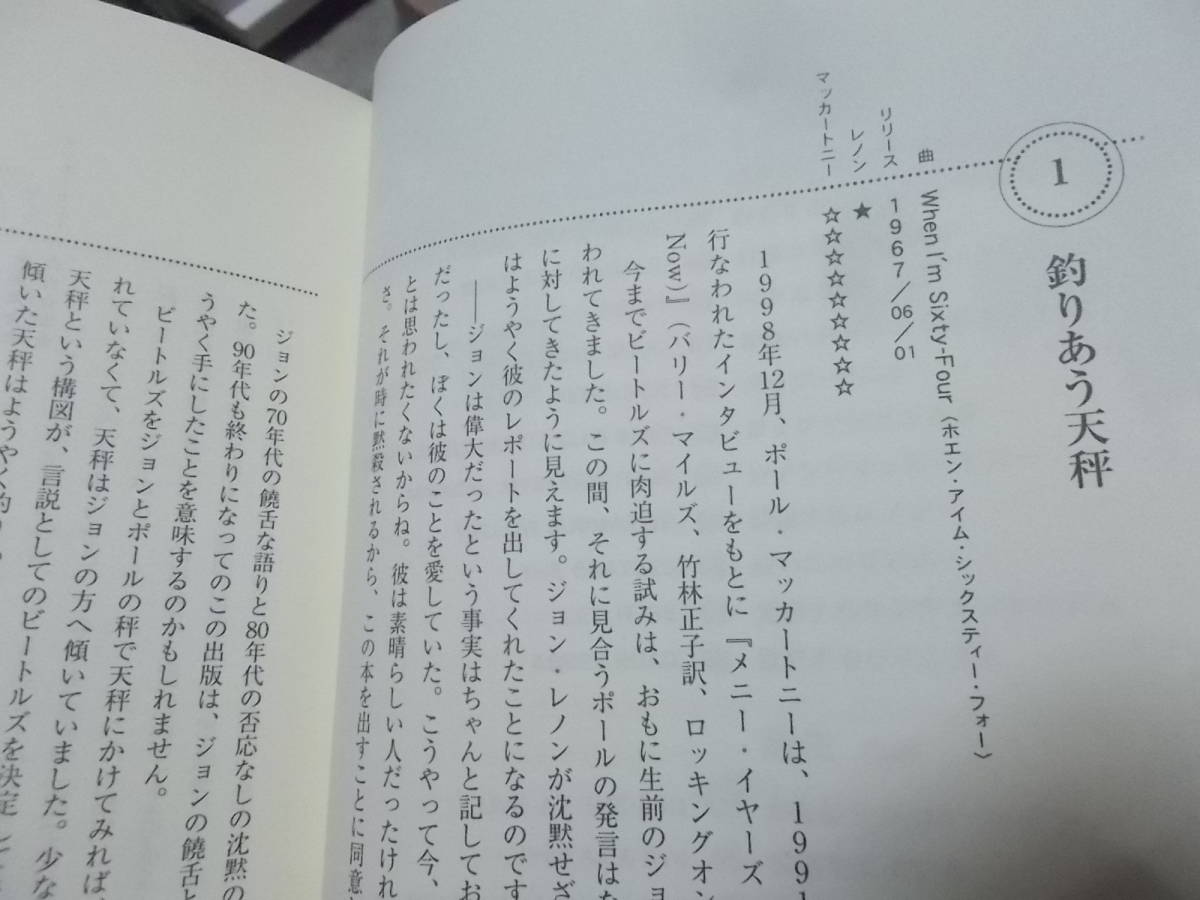 1
釣りあう天秤
曲 When I'm Sixty-Four〈ホエン・アイム・シックスティー・フォー〉
リリース 1967/06/01
レノン ★
マッカートニー ☆☆☆☆☆☆☆☆☆
1998年12月、ポール・マッカートニーは、1991
行なわれたインタビューをもとに『メニー・イヤーズ
Now)』(バリー・マイルズ、竹林正子訳、ロッキングオン
今までビートルズに肉迫する試みは、おもに生前のジョ
われてきました。この間、それに見合うポールの発言はな
に対してきたように見えます。ジョン・レノンが沈黙せざ
はようやく彼のレポートを出してくれたことになるのです
――ジョンは偉大だったという事実はちゃんと記してお
だったし、ぼくは彼のことを愛していた。こうやって今、
とは思われたくないからね。彼は素晴らしい人だったけれ
さ。それが時に黙殺されるから、この本を出すことに同意
ジョンの70年代の饒舌な語りと80年代の否応なしの沈黙の
た。90年代も終わりになってのこの出版は、ジョンの饒舌と
うやく手にしたことを意味するのかもしれません。
ビートルズをジョンとポールの秤で天秤にかけてみれば
れていなくて、天秤はジョンの方へ傾いていました。少な
天秤という構図が、言説としてのビートルズを決定して
傾いた天秤はようやく釣り